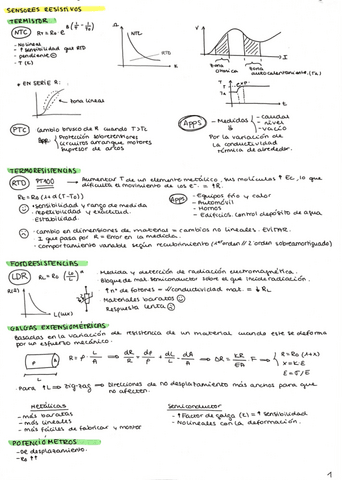 SENSORES RESISTIVOS
TERMISTOR
NTC
- No lineales
- ↑ sensibilidad que RTD
- pendiente ⊖
- T (L)
R
NTL
RTD
t
V
I
zona ohmica
zona autocalentamiento (Th)
* EN SERIE R:
zona lineal
PTC Cambio brusco de R cuando T>Tc
App: Protección sobretensiones
circuitos arranque motores
supresor de arcos
Apps - Medidas - caudal
- nivel
- vacío
Por la variación de
la conductividad
térmica de alrededor.
TERMORESISTENCIAS
RTD PT100 → Aumentar T de un elemento metálico, sus moléculas ↑ Ec, lo que
dificulta el movimiento de los e⁻ = ↑R.
+ sensibilidad y rango de medida
- repetibilidad y exactitud.
Estabilidad.
Apps - Equipos frío y calor
- Automóvil
- Hornos
- Edificios. Control depósito de agua
- cambio en dimensiones de material = cambios no lineales. EVITAR.
I que pasa por R = Error en la medida.
- Comportamiento variable según recubrimiento (1er orden // 2º orden sobreamortiguado)
FOTORESISTENCIAS
LDR
Medida y detección de radiación electromagnética.
Bloque de mat. semiconductor sobre el que incide radiación.
↑ nº de fotones = ↑ conductividad mat. = ↓ RL
Materiales baratos
Respuesta lenta
R(Ω)
L(lux)
GALGAS EXTENSIOMÉTRICAS
Basadas en la variación de resistencia de un material cuando este se deforma
por un esfuerzo mecánico.
R = ρ · L/A ⇒ dR/R = dρ/ρ + dL/L - dA/A
R = R0 (1+x)
x = K·ε
ε = σ/E
Para ↑L ⇒ zig-zag ⇒ Direcciones de no desplazamiento más anchos para que
no afecten.
Metálicas
- más baratas
- más lineales
- más fáciles de fabricar y montar
Semiconductor
- ↑ Factor de galga (K) = ↑ sensibilidad
- No lineales con la deformación.
POTENCIÓMETROS
- De desplazamiento.
1